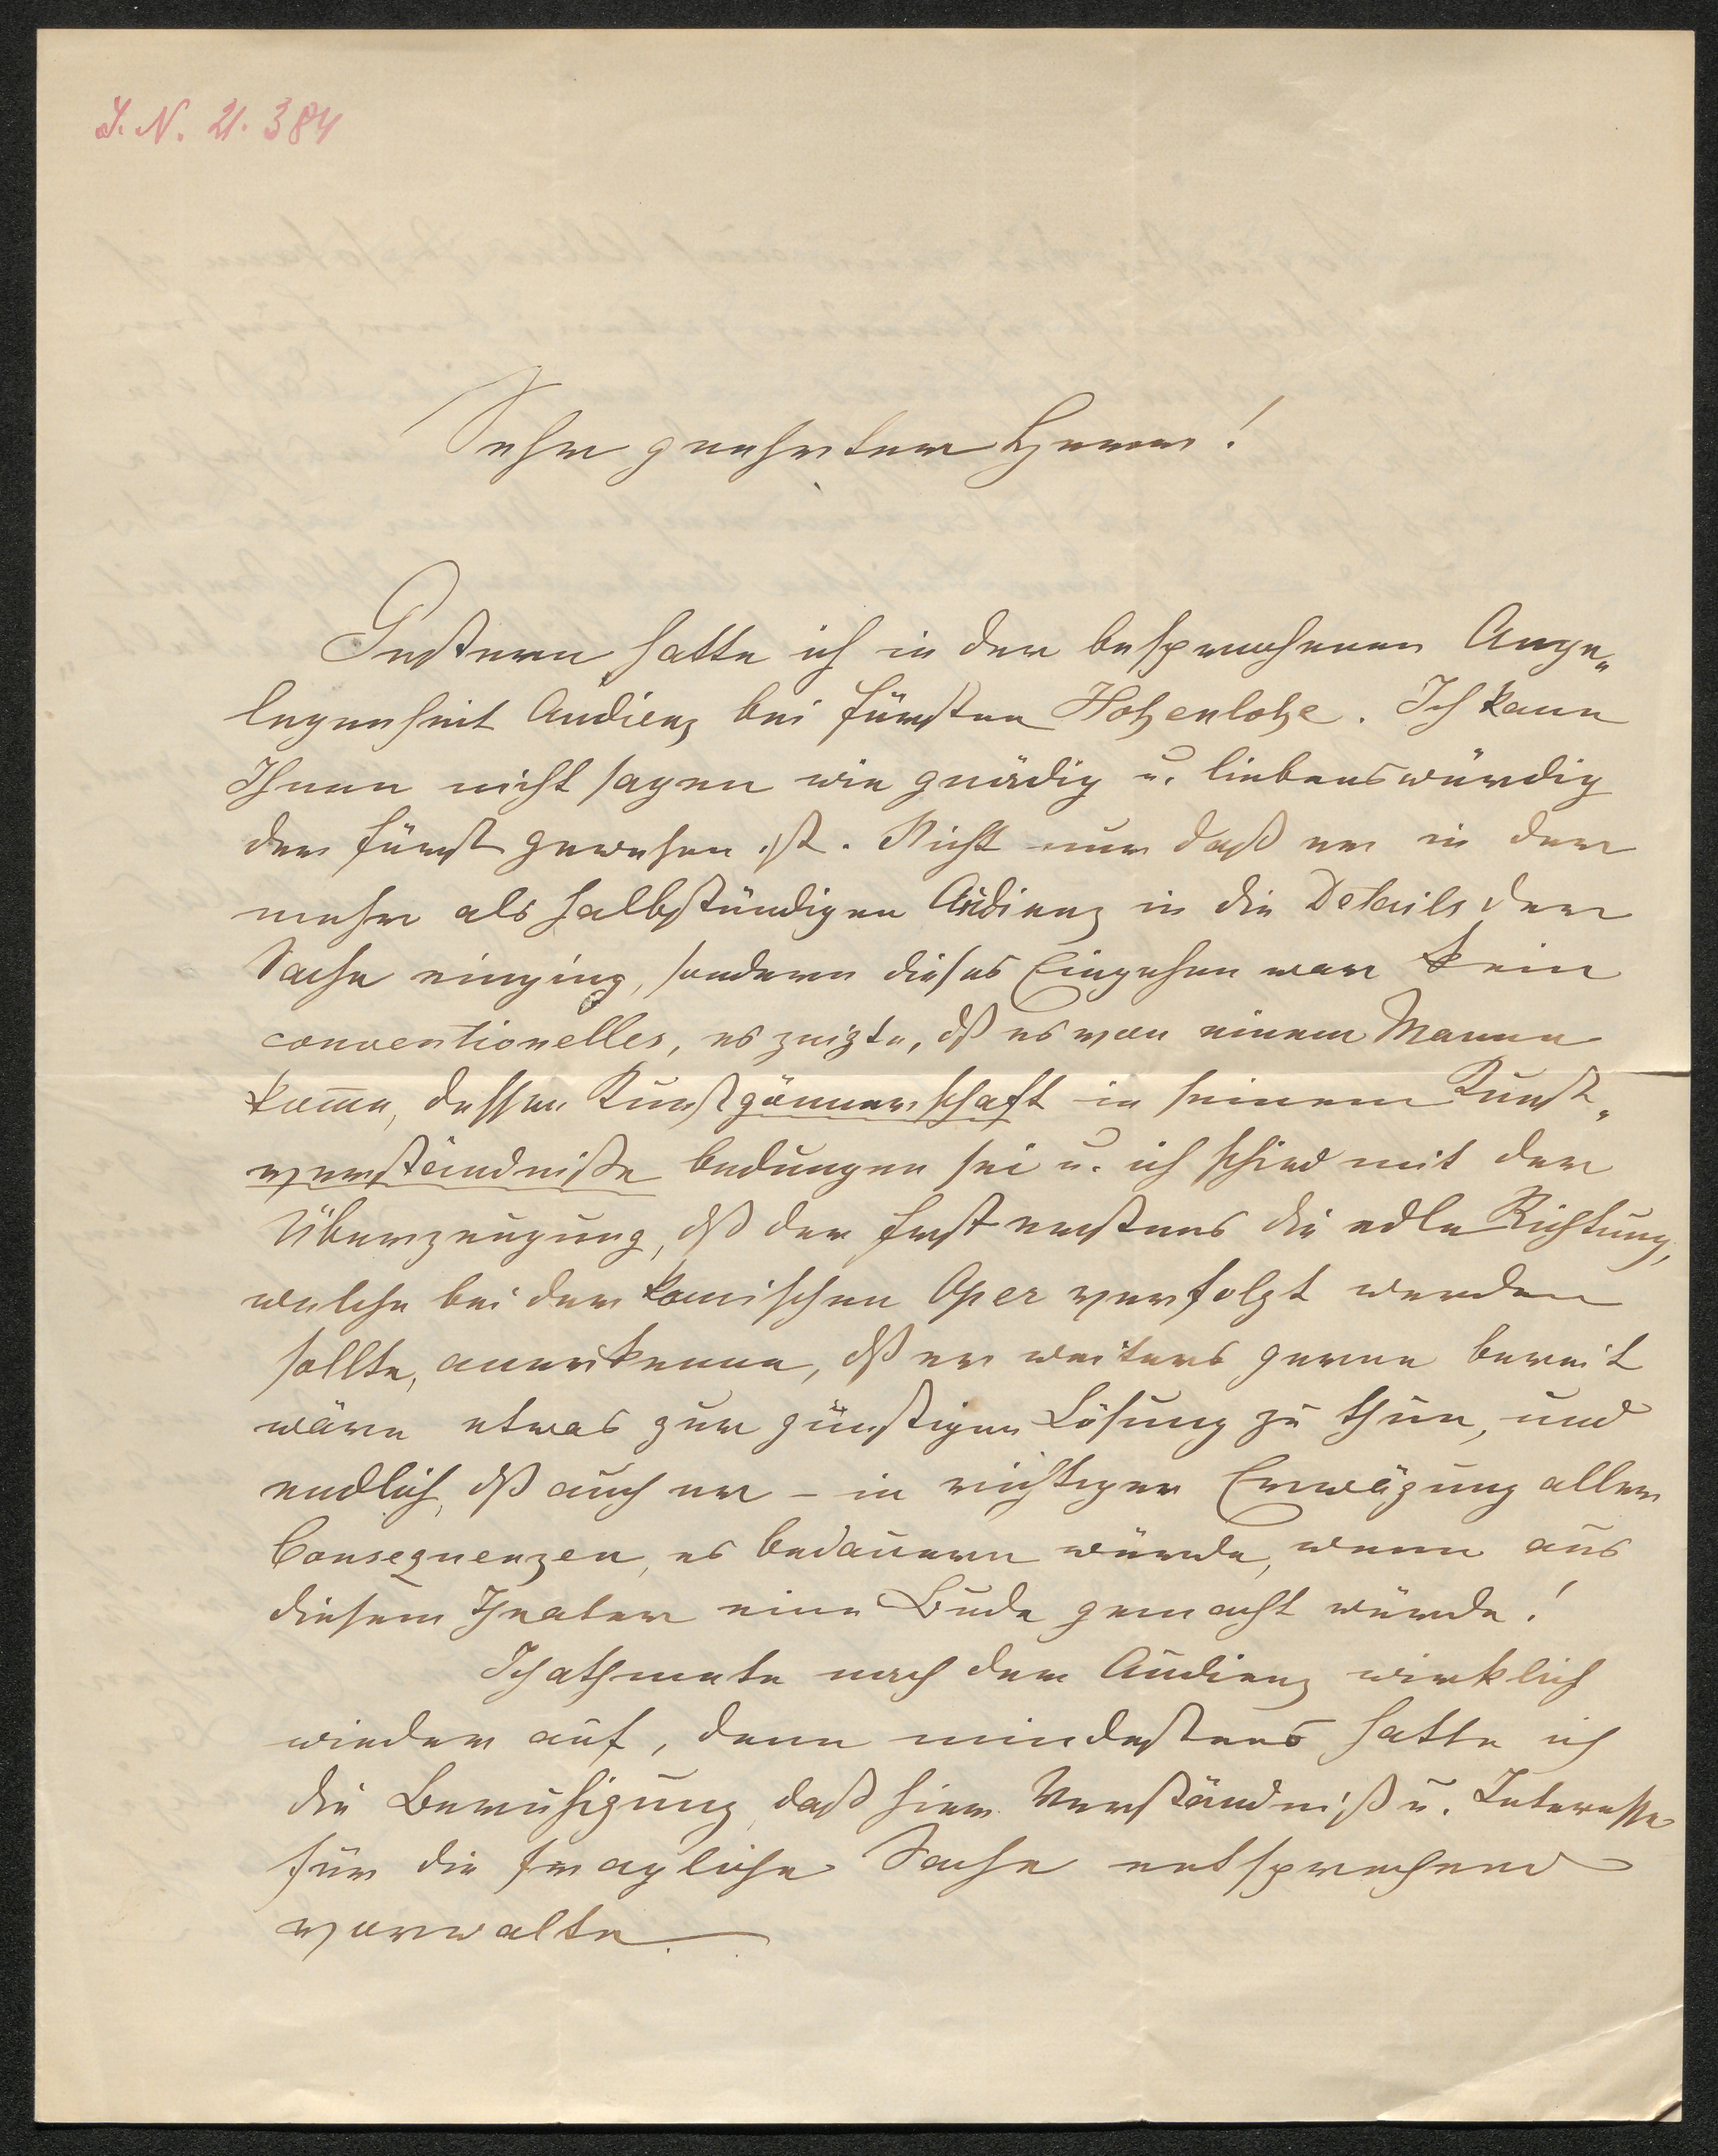 J. N. 21.384
Sehr geehrter Herr!
Gestern hatte ich in der besprochenen Ange„
legenheit Audienz bei Fürsten Hohenlohe. Ich kann
Ihnen nicht sagen wie gnädig u. liebenswürdig
der Fürst gewesen ist. Nicht nur daß er in der
mehr als halbstündigen Audienz in die Details der
Sache einging, sondern dieses Eingehen war kein
conventionelles, es zeigte, dß es von einem Manne
kom̅e, dessen Kunstgönnerschaft in seinem Kunst„
verständniße bedungen sei u. ich schied mit der
Überzeugung, dß der Fürst erstens die edle Richtung,
welche bei der komischen Oper verfolgt werden
sollte, anerkenne, dß er weiters gerne bereit
wäre etwas zur günstigen Lösung zu thun, und
endlich, dß auch er – in richtiger Erwägung aller
Consequenzen, es bedauern würde, wenn aus
diesem Theater eine Bude gemacht würde!
Ich athmete nach der Audienz wirklich
wieder auf, denn mindestens hatte ich
die Beruhigung, daß hier Verständniß u. Interesse
für die fragliche Sache entsprechend
vorwalte.